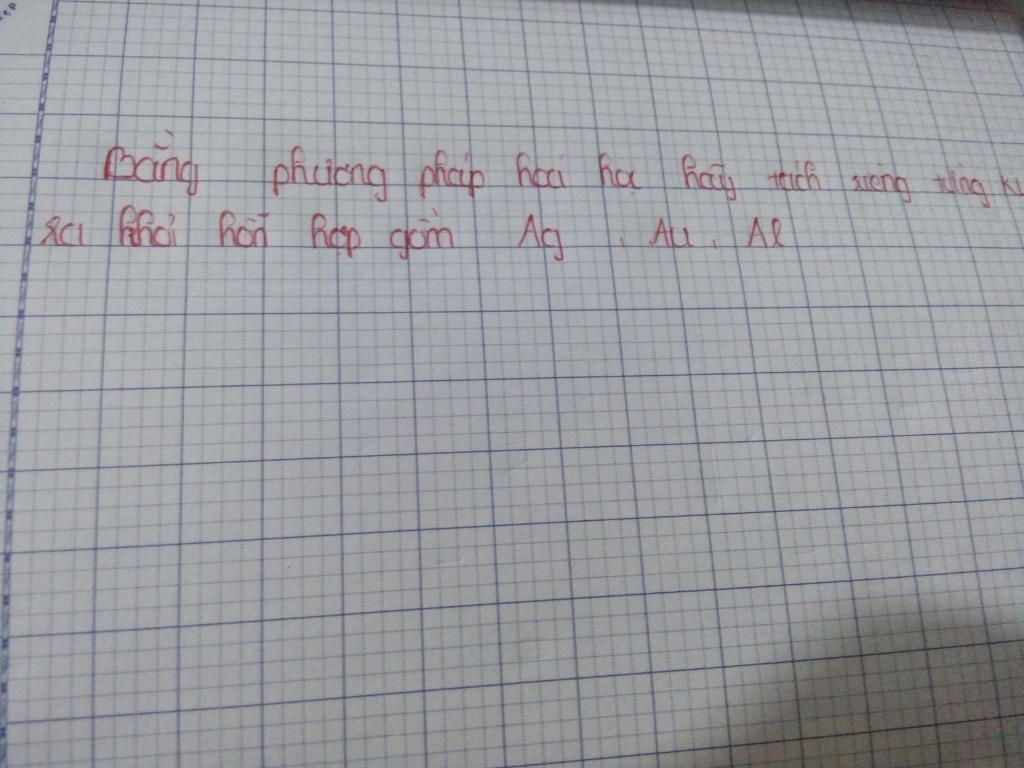 Bằng phương pháp hoá học hãy tách riêng từng
ra khỏi hỗn hợp gồm Ag, Au, Al